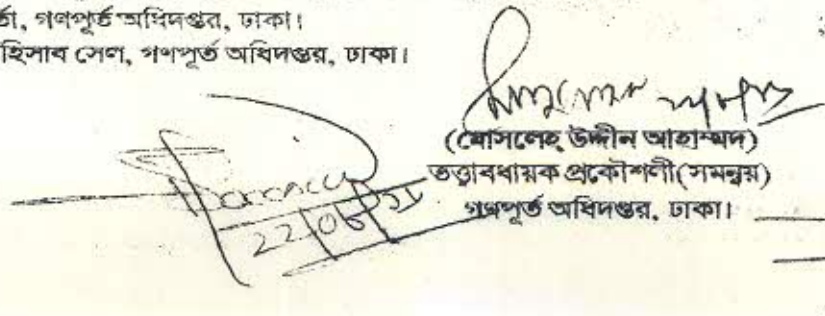 র্তা, গণপূর্ত অধিদপ্তর, ঢাকা।
হিসাব সেল, গণপূর্ত অধিদপ্তর, ঢাকা।
(মোসলেহ্ উদ্দীন আহাম্মদ)
তত্ত্বাবধায়ক প্রকৌশলী(সমন্বয়)
গণপূর্ত অধিদপ্তর, ঢাকা।
22/06